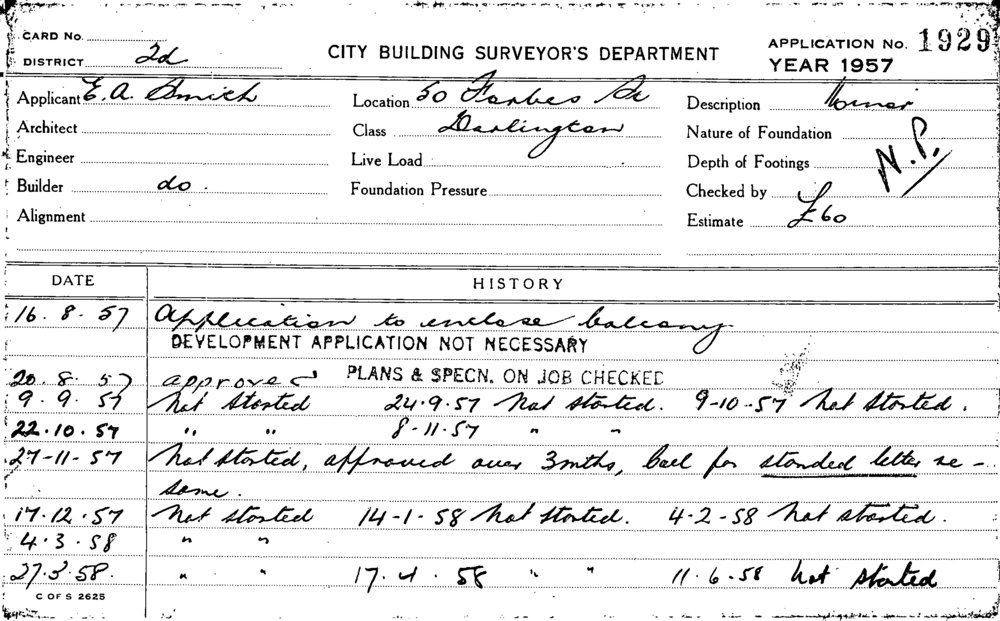 CARD No.
DISTRICT 2d
CITY BUILDING SURVEYOR'S DEPARTMENT
APPLICATION No. 1929
YEAR 1957
Applicant E. A. Smith
Location 50 Forbes St
Description Minor
Architect
Class Darlington
Nature of Foundation
Engineer
Live Load
Depth of Footings
N.P.
Builder do.
Foundation Pressure
Checked by
Alignment
Estimate £60
DATE HISTORY
16. 8. 57 Application to enclose balcony.
DEVELOPMENT APPLICATION NOT NECESSARY
20. 8. 57 approved PLANS & SPECN. ON JOB CHECKED
9. 9. 57 Not started 24.9.57 Not started. 9-10-57 Not started.
22.10.57 " " 8-11-57 " "
27-11-57 Not started, approved over 3mths, call for standed letter re-
same.
17.12.57 Not started 14-1-58 Not started. 4-2-58 Not started.
4.3.58 " "
27.3.58. " " 17.4.58 " " 11.6.58 Not started
C OF S 2625